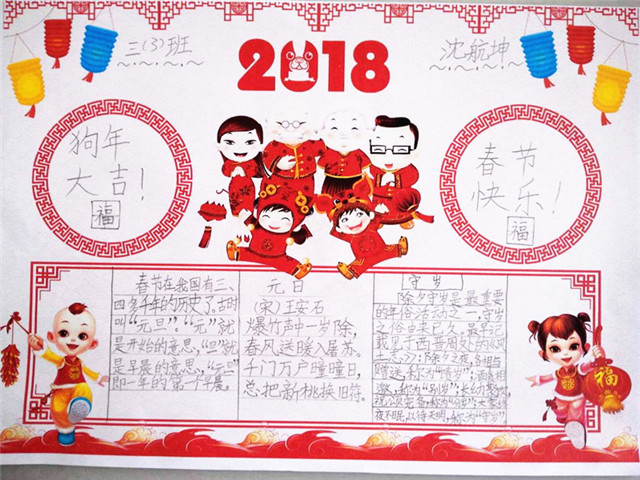 三(3)班
2018
沈航坤
狗年
大吉!
福
春节
快乐!
福
春节在我国有三、
四多千年的历史了。古时
叫“元旦”。“元”就
是开始的意思,“旦”就
是早晨的意思,“元旦”
即一年的第一个早晨。
元日
(宋)王安石
爆竹声中一岁除,
春风送暖入屠苏。
千门万户曈曈日,
总把新桃换旧符。
守岁
除夕守岁是最重要
的年俗活动之一,守岁
之俗由来已久。最早记
载见于西晋周处的《风
土志》:除夕之夜,各相与
赠送,称为“馈岁”;酒食相
邀,称为“别岁”;长幼聚饮,
祝颂完备,称为“分岁”;大家终
夜不眠,以待天明,称为“守岁”。
福